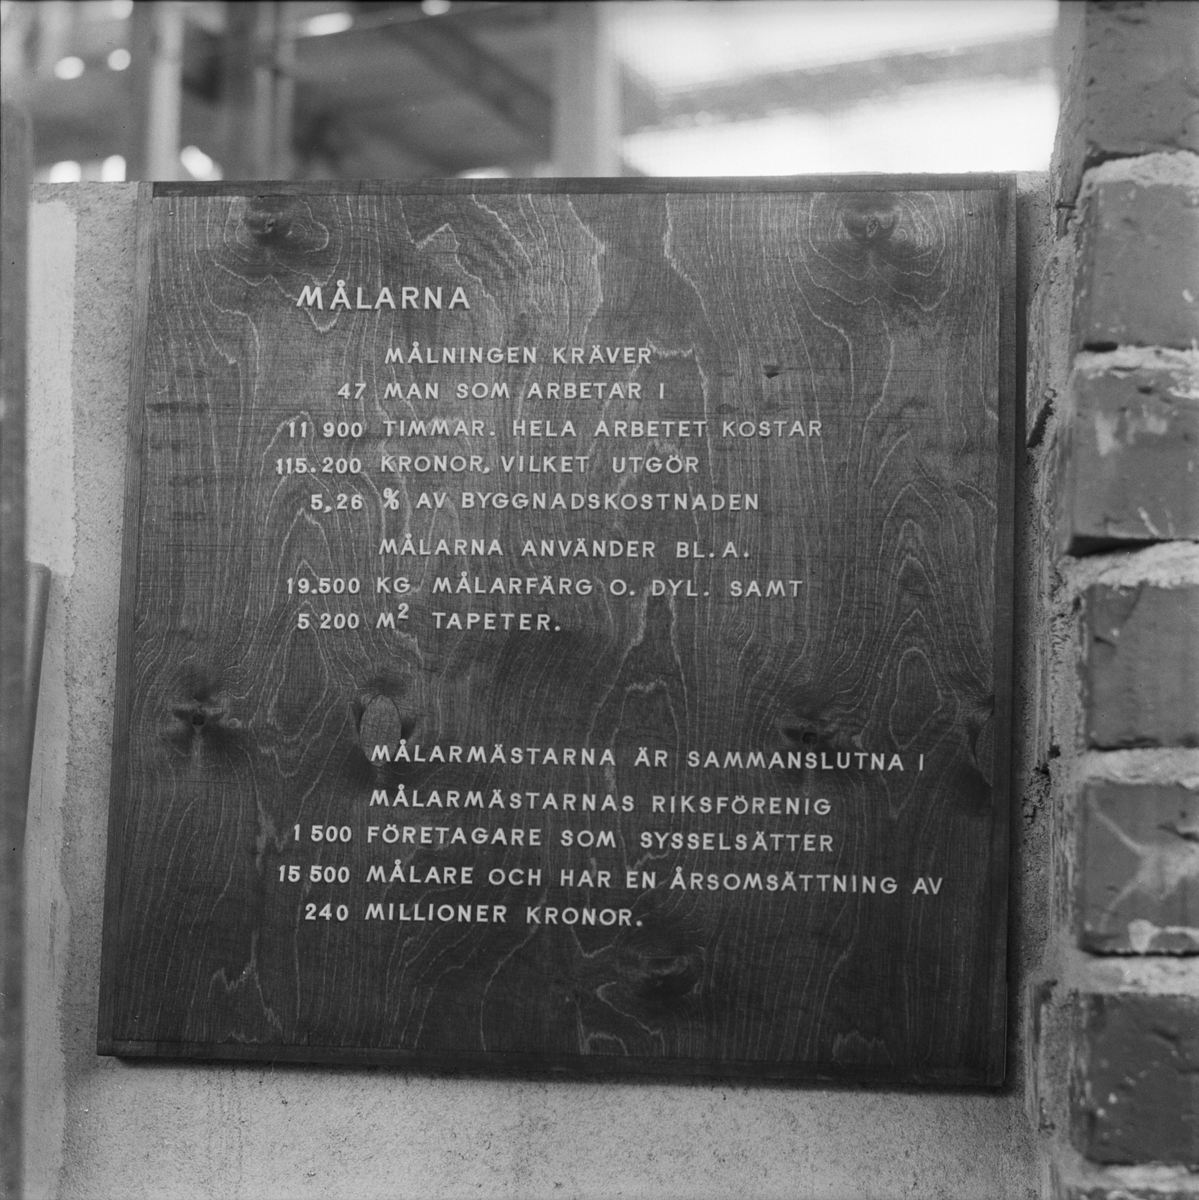 MÅLARNA
MÅLNINGEN KRÄVER
47 MAN SOM ARBETAR I
11 900 TIMMAR. HELA ARBETET KOSTAR
115.200 KRONOR, VILKET UTGÖR
5,26 % AV BYGGNADSKOSTNADEN
MÅLARNA ANVÄNDER BL.A.
19.500 KG MÅLARFÄRG O. DYL. SAMT
5 200 M² TAPETER.
MÅLARMÄSTARNA ÄR SAMMANSLUTNA I
MÅLARMÄSTARNAS RIKSFÖRENIG
1 500 FÖRETAGARE SOM SYSSELSÄTTER
15 500 MÅLARE OCH HAR EN ÅRSOMSÄTTNING AV
240 MILLIONER KRONOR.